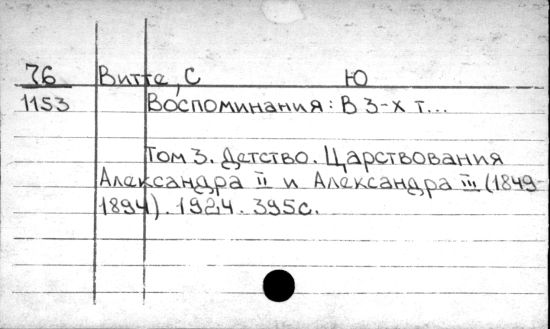 76 Витте, С Ю
1153 Воспоминания: В 3-х т...
Том 3. Детство. Царствования
Александра II и Александра III (1849-
1894). 1924. 395с.